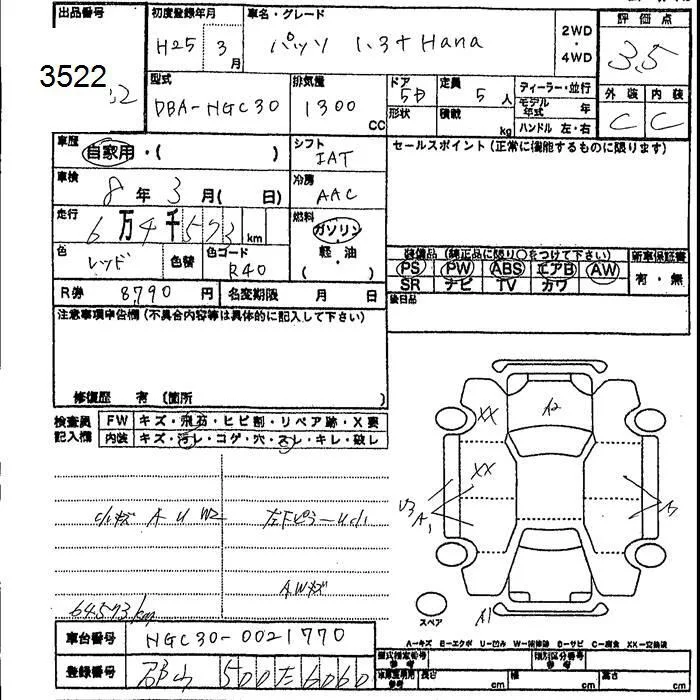 出品番号 初度登録年月 車名・グレード 評価点
H25 3月 パッソ 1.3+Hana 2WD・4WD 3.5
3522
型式 排気量 ドア 定員 ディーラー・並行 外装 内装
DBA-NGC30 1300cc 5D 5人 モデル年式 年 C C
形状 積載 kg ハンドル 左・右
車歴 自家用・( ) シフト IAT セールスポイント(正常に機能するものに限ります)
車検 8年3月(日) 冷房 AAC
走行 6万4千573km 燃料 ガソリン
色 レッド 色替 色コード R40 軽・油 ・( )
装備品(純正品に限り〇をつけて下さい) 新車保証書
PS PW ABS エアB AW 有・無
SR ナビ TV カワ
R券 8790円 名変期限 月 日 後日品
注意事項申告欄(不具合内容等は具体的に記入して下さい)
修復歴 有 (箇所 )
検査員記入欄 FW キズ・飛石・ヒビ割・リペア跡・X要
内装 キズ・汚レ・コゲ・穴・スレ・キレ・破レ
A2
XX
XX
小キズ A U W2 左FピラーU小
U3 A1
AWキズ
64573km
スペア A1
A-キズ E-エクボ U-凹み W-補修跡 S-サビ C-腐食 XX-交換済
車台番号 NGC30-0021770
型式指定番号 参考 類別区分番号 参考
登録番号 500 た 6060
車庫証明用 参考 長さ cm 幅 cm 高さ cm